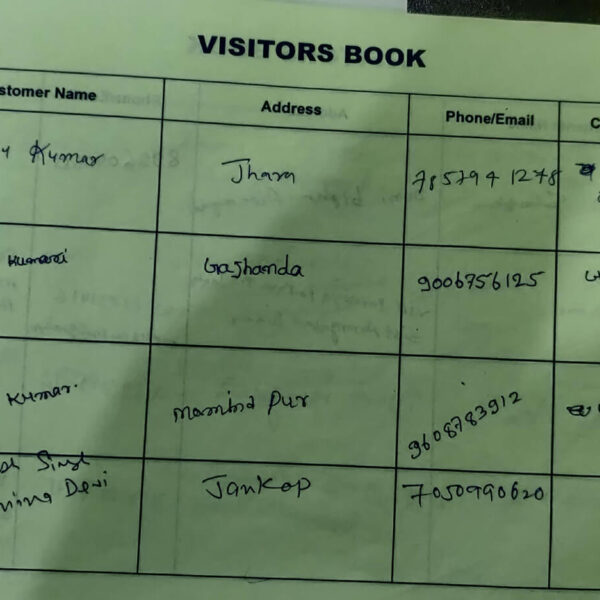 VISITORS BOOK
stomer Name Address Phone/Email C
Kumar Jharn 7857941278
Kumari Gajhanda 9006756125
Kumar. Pur 9608783912
Singh
Devi Jankop 7050990620